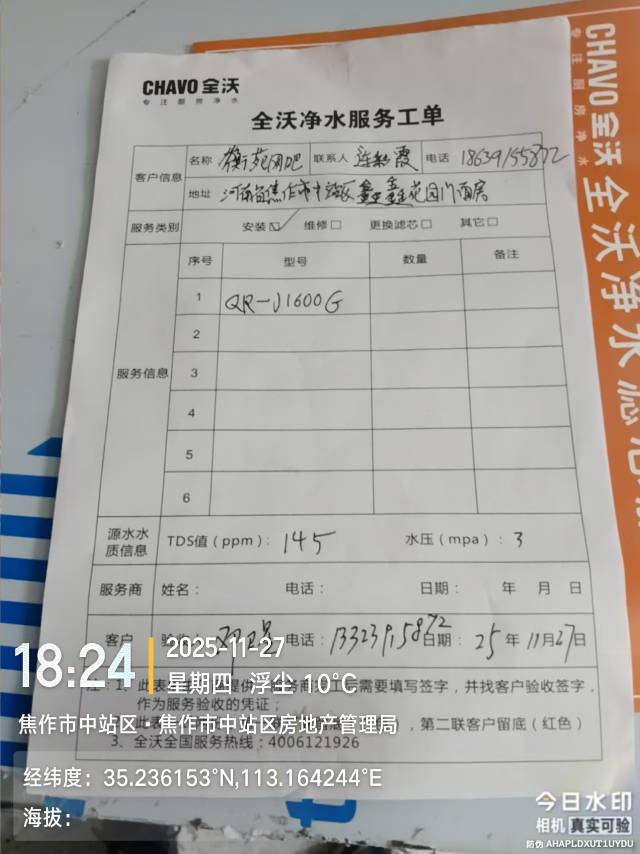 CHAVO 全沃
专注厨房净水
全沃净水服务工单
客户信息 名称 衡苑网吧 联系人 连彩霞 电话 18639155872
地址 河南省焦作市中站区鑫鑫花园门面房
服务类别 安装☑ 维修□ 更换滤芯□ 其它□
服务信息 序号 型号 数量 备注
1 QR-J1600G
2
3
4
5
6
源水水质信息 TDS值（ppm）：145 水压（mpa）：3
服务商 姓名： 电话： 日期： 年 月 日
客户 电话：13323915872 日期：25年11月27日
需要填写签字，并找客户验收签字，
作为服务验收的凭证；
，第二联客户留底（红色）
3、全沃全国服务热线：4006121926
CHAVO 全沃
专注厨房净水
全沃净水
18:24
2025-11-27
星期四 浮尘 10°C
焦作市中站区·焦作市中站区房地产管理局
经纬度：35.236153°N,113.164244°E
海拔：
今日水印
相机 真实可验
防伪 AHAPLDXUT1UYDU